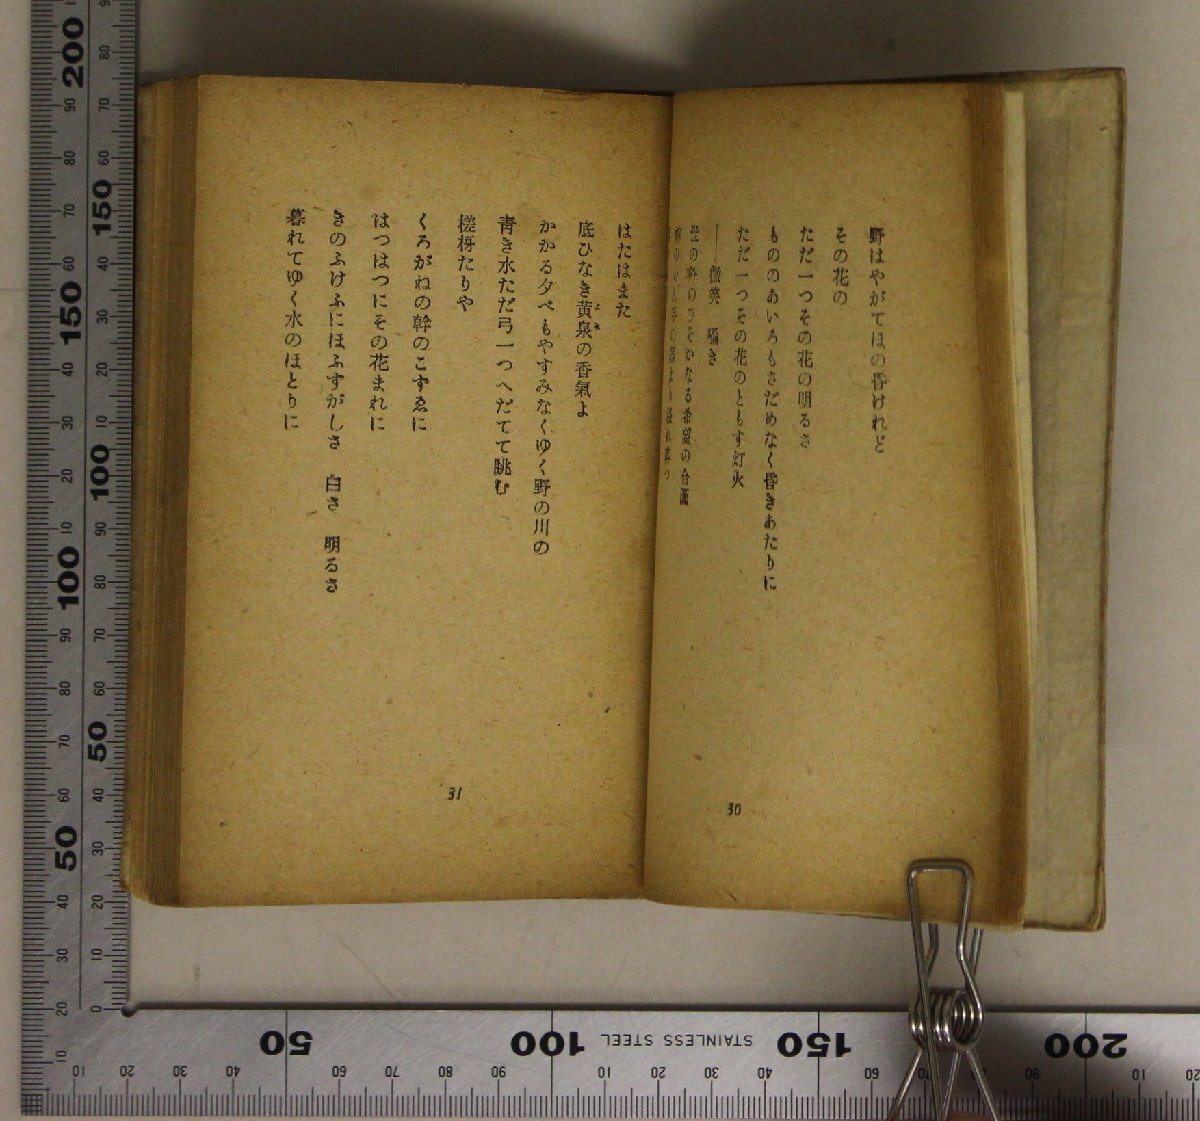 野はやがてほの昏けれど
その花の
ただ一つその花の明るさ
もののあいろもさだめなく昏きあたりに
ただ一つその花のともす灯火
――微笑 囁き
のひそかなる希望の
30
はたはまた
底ひなき黄泉の香氣よ
よみ
かかる夕べもやすみなくゆく野の川の
靑き水ただ弓一つへだてて眺む
槎枒たりや
くろがねの幹のこずゑに
はつはつにその花まれに
きのふけふにほふすがしさ 白さ 明るさ
暮れてゆく水のほとりに
31
200
90
80
70
60
150
40
30
20
10
100
90
80
70
60
50
40
30
20
10
0
50
100
STAINLESS STEEL
150
200